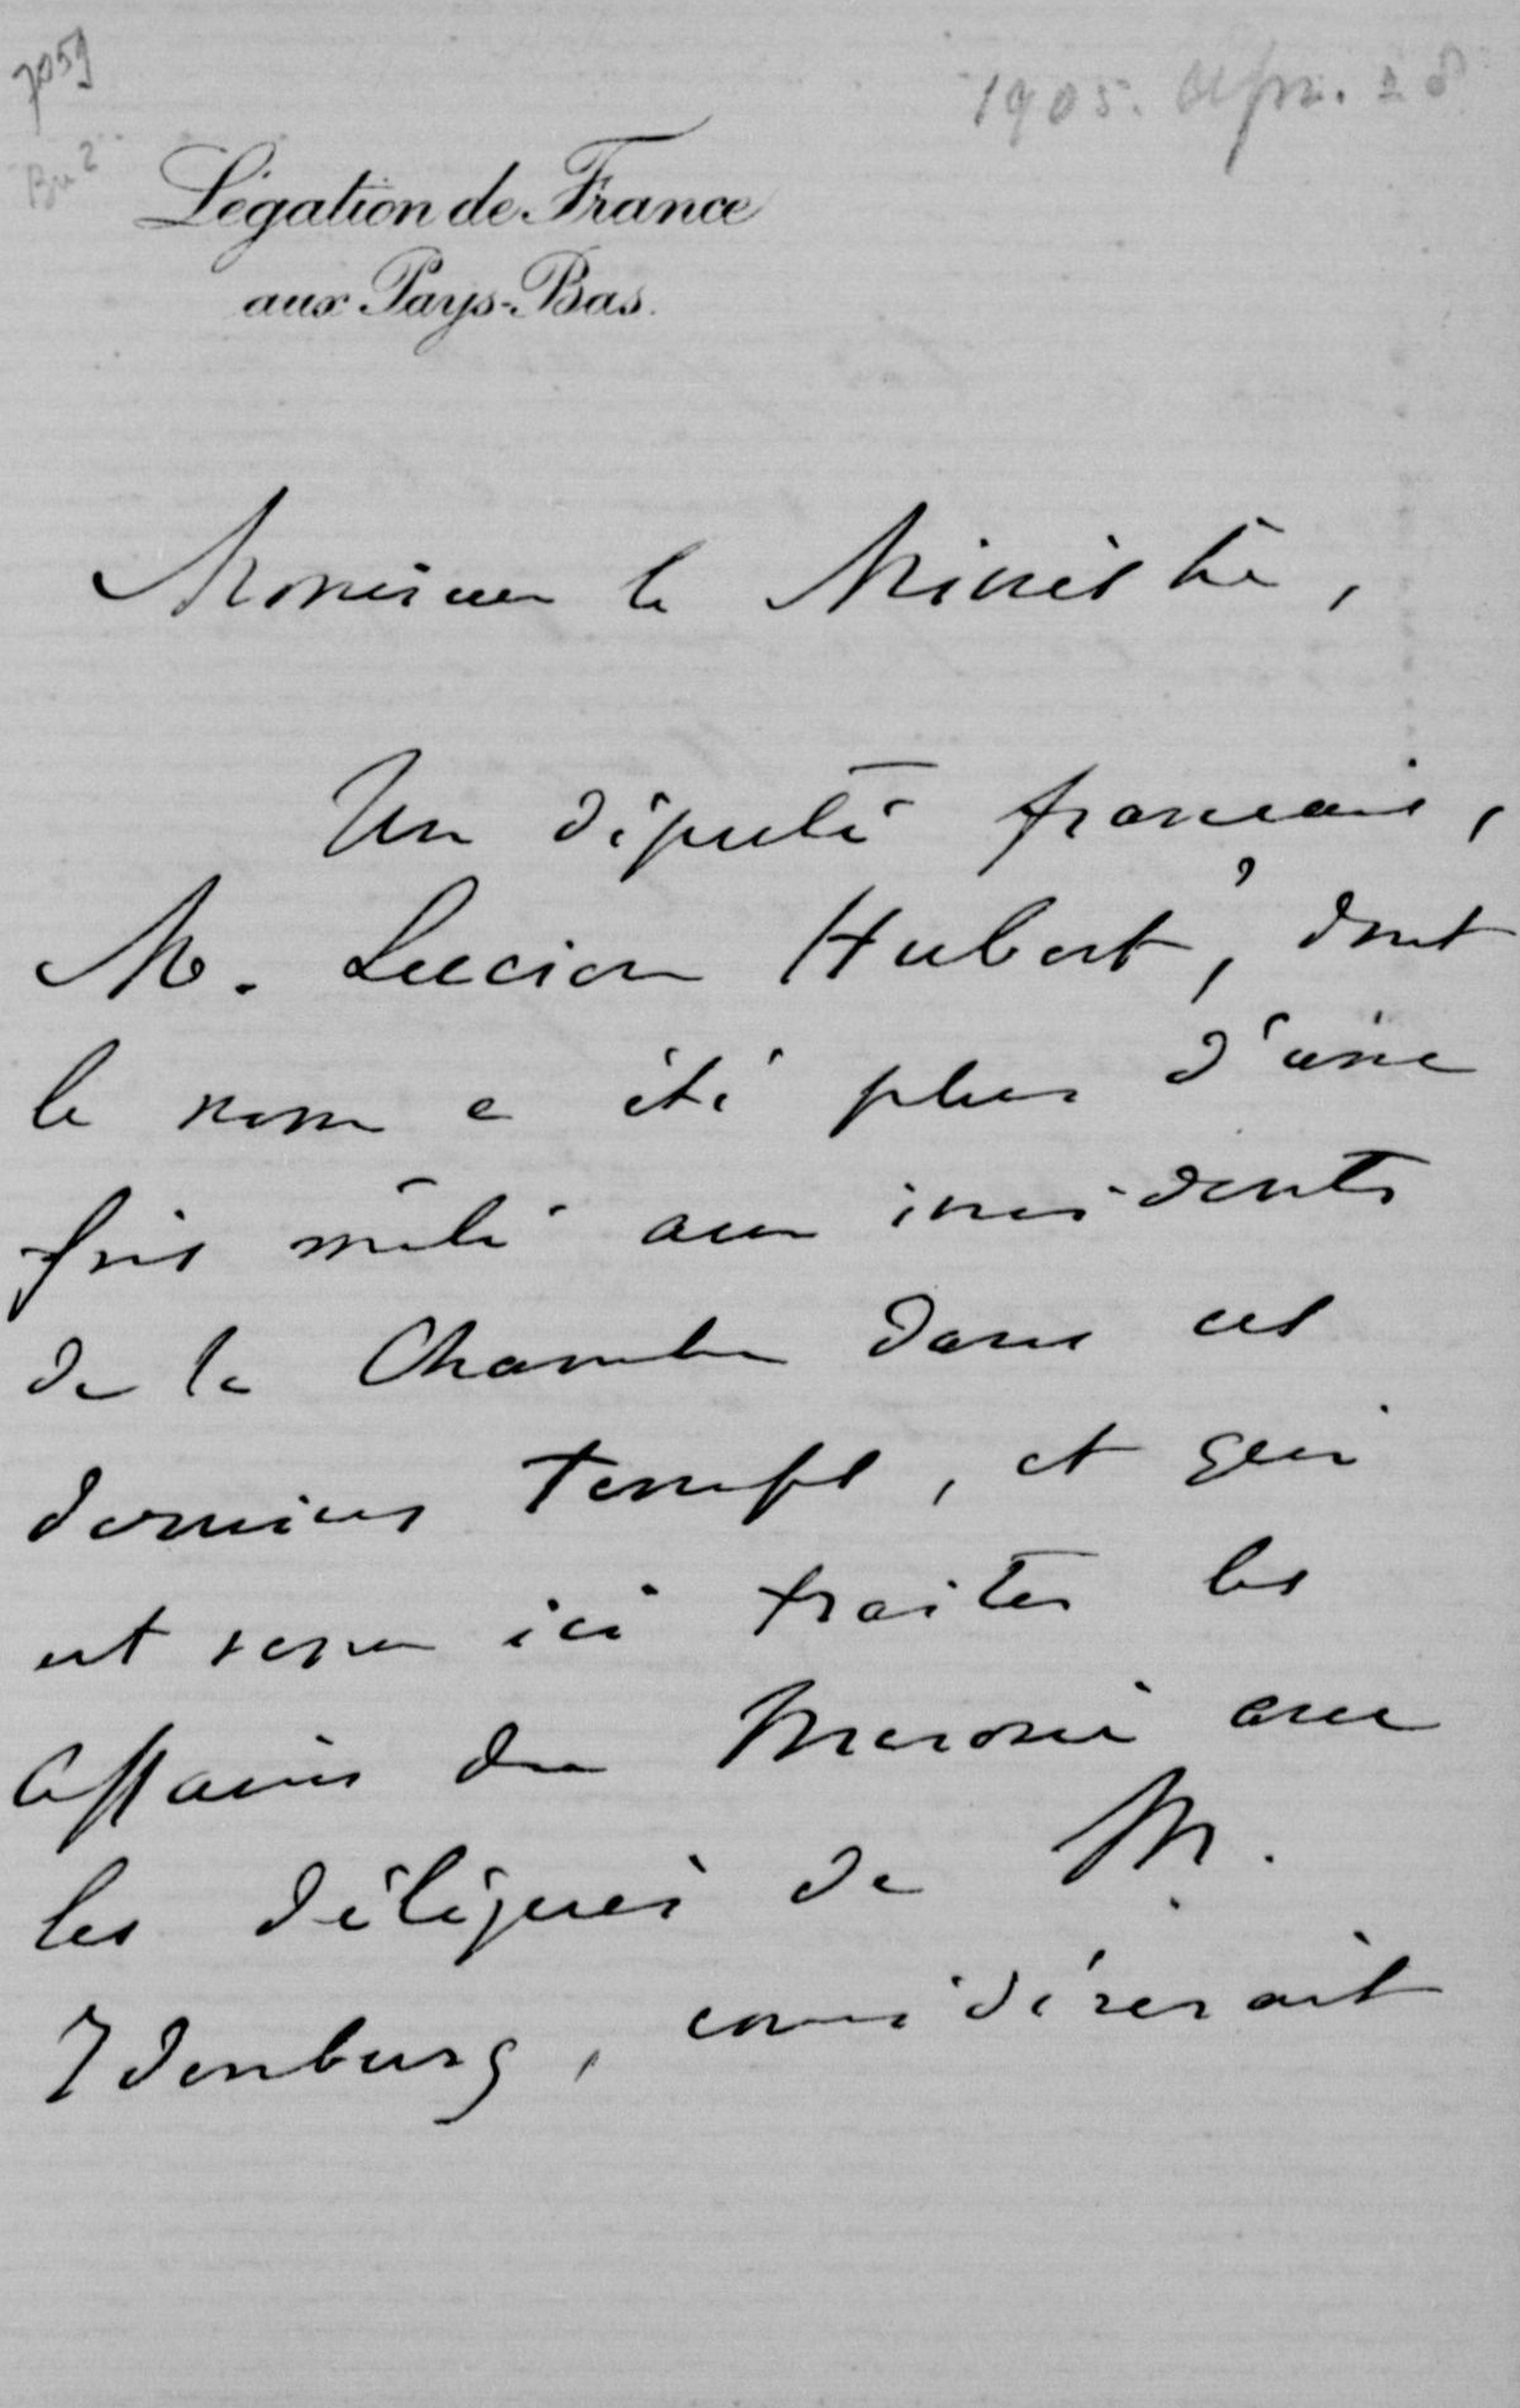 7059
1905. Apr. 28
Bu 2
Légation de France
aux Pays-Bas.
Monsieur le Ministre,
Un député français,
M. Lucien Hubert, dont
le nom a été plus d'une
fois mêlé aux incidents
de la Chambre dans ces
derniers temps, et qui
est venu ici traiter les
affaires du Maroni avec
les délégués de M.
Idenburg, considérerait